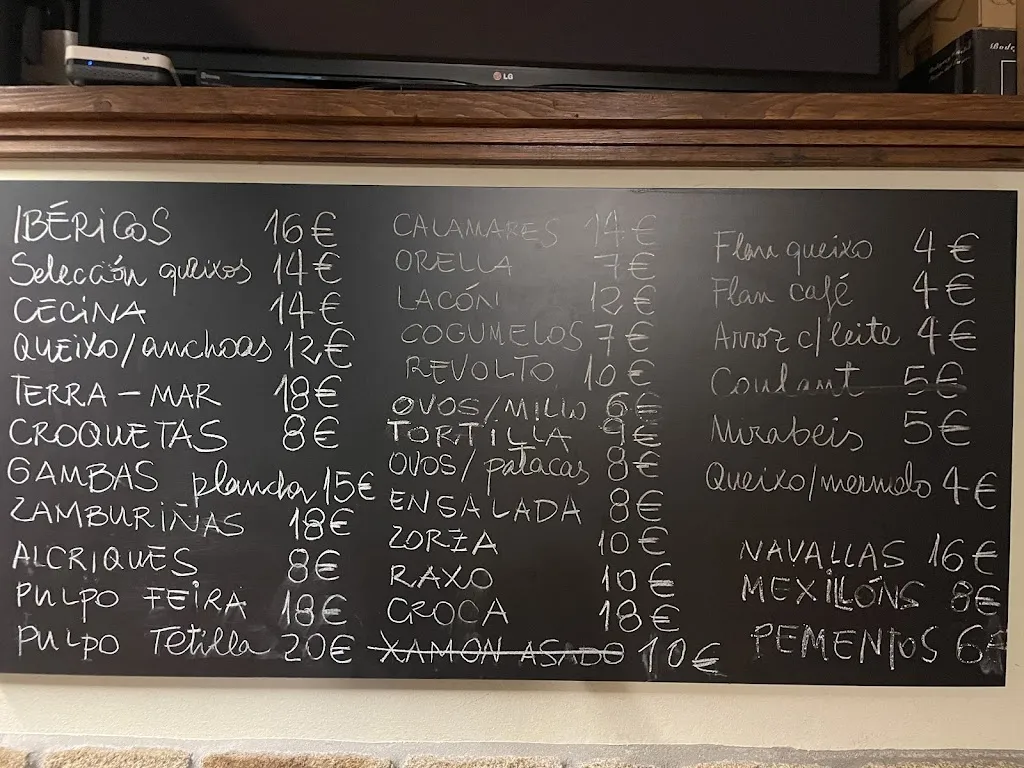 LG
IBÉRICOS 16€
Selección queixos 14€
CECINA 14€
QUEIXO/anchoas 12€
TERRA - MAR 18€
CROQUETAS 8€
GAMBAS plancha 15€
ZAMBURIÑAS 18€
ALCRIQUES 8€
PULPO FEIRA 18€
PULPO Tetilla 20€
CALAMARES 14€
ORELLA 7€
LACÓN 12€
COGUMELOS 7€
REVOLTO 10€
OVOS/MILLO 6€
TORTILLA 9€
OVOS/patacas 8€
ENSALADA 8€
ZORZA 10€
RAXO 10€
CROCA 18€
XAMON ASADO 10€
Flan queixo 4€
Flan café 4€
Arroz c/leite 4€
Coulant 5€
Mirabeis 5€
Queixo/marmelo 4€
NAVALLAS 16€
MEXILLÓNS 8€
PEMENTOS 6€